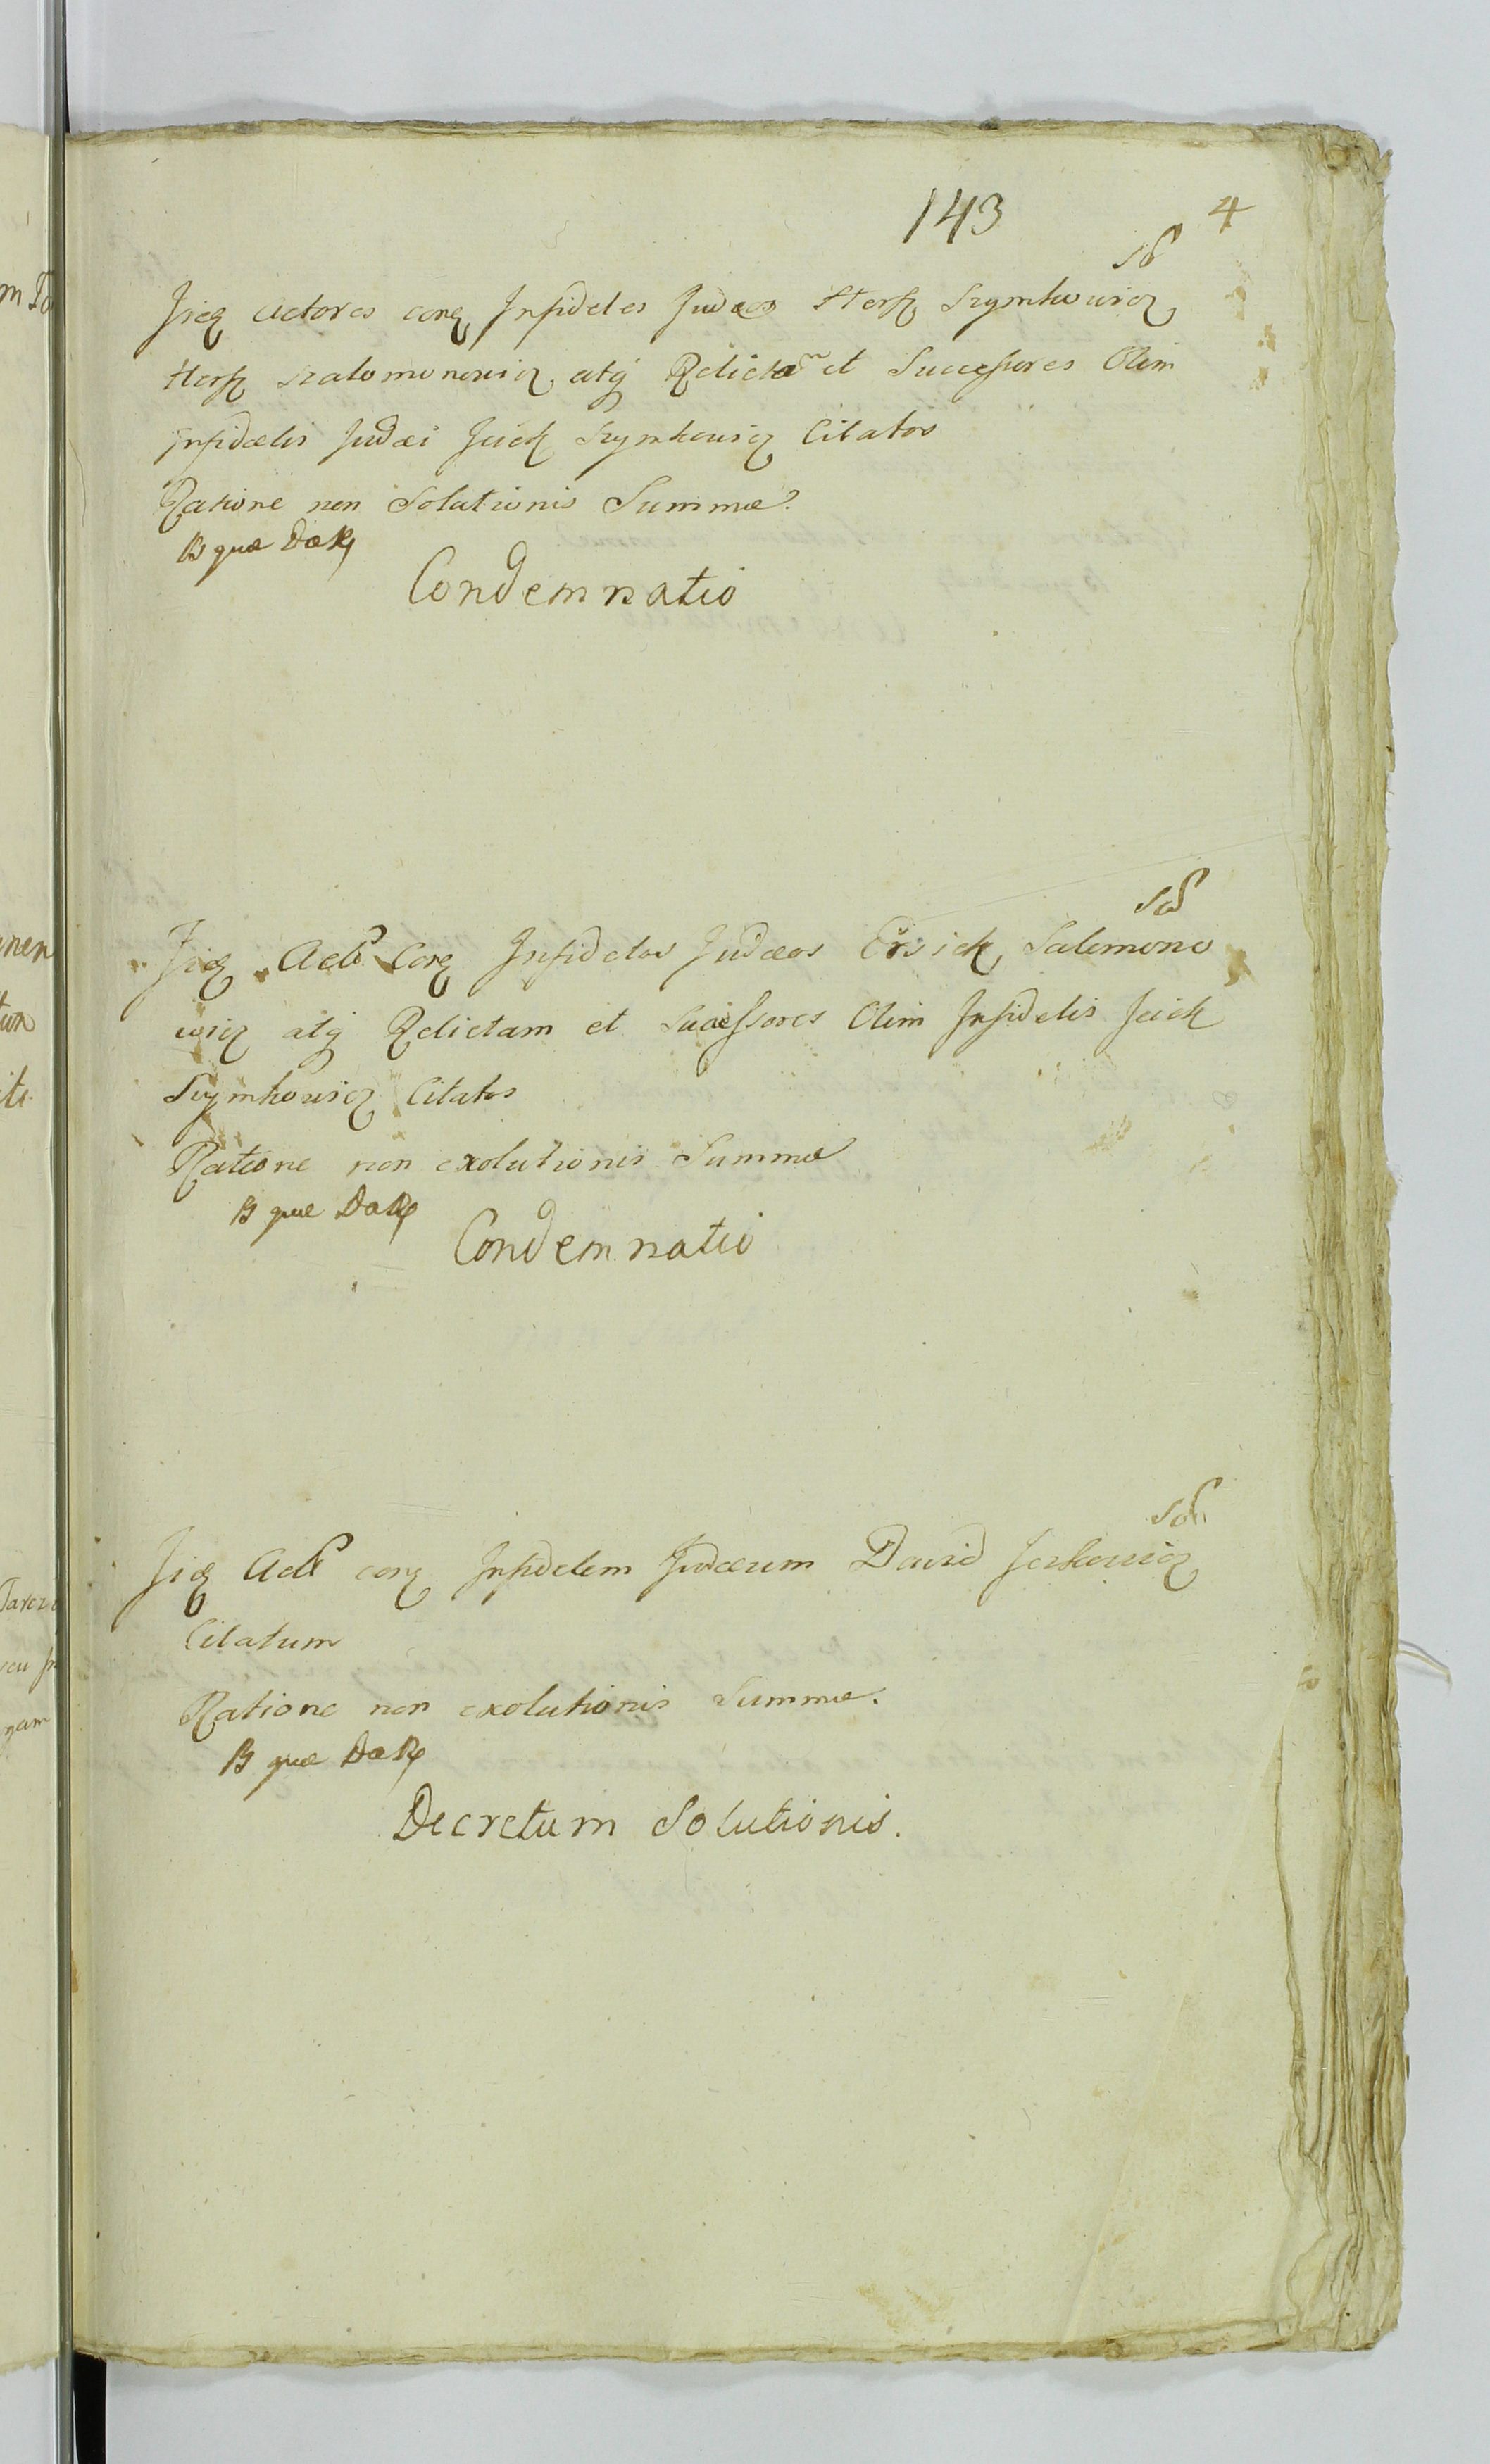 143 4
Sd
Iidq Actores conq Infideles Judæos Herszk Szymkowicz
Herszk Szalomonowicz atq Relictam et Successores Olim
Infidelis Judæi Icick Szymkowicz Citatos
Ratione non Solutionis Summæ.
Condemnatio
Sd
Iidq Act Conq Infideles Judæos Ersick Salomono
wicz atq Relictam et Successores Olim Infidelis Icick
Szymkowicz Citatos
Ratione non exolutionis Summæ
Condemnatio
Sd
Iidq Act conq Infidelem Judæum David Jerkowicz
Citatum
Ratione non exolutionis Summæ.
Decretum Solutionis.